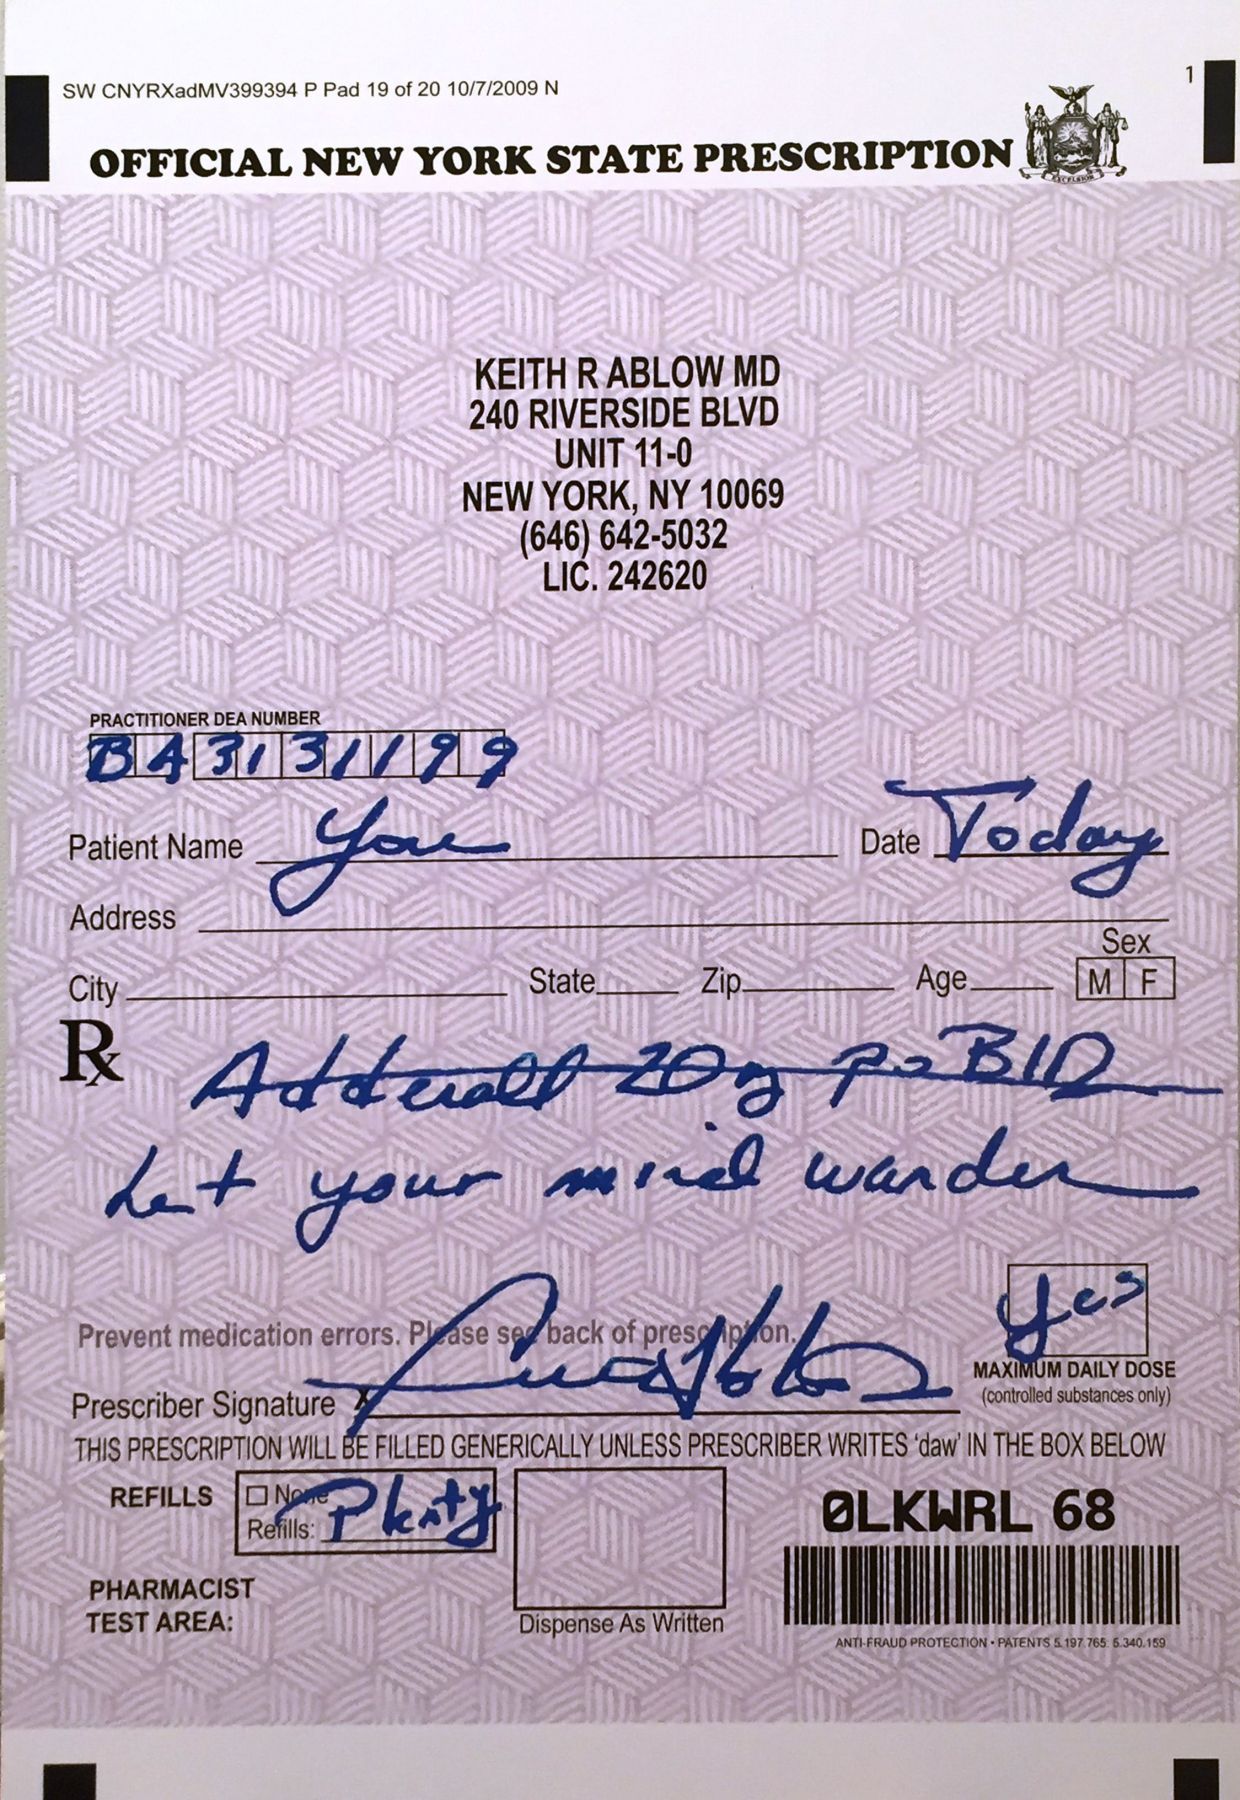 SW CNYRXadMV399394 P Pad 19 of 20 10/7/2009 N
1
OFFICIAL NEW YORK STATE PRESCRIPTION
EXCELSIOR
KEITH R ABLOW MD
240 RIVERSIDE BLVD
UNIT 11-0
NEW YORK, NY 10069
(646) 642-5032
LIC. 242620
PRACTITIONER DEA NUMBER
BA3131199
Patient Name You Date Today
Address
Sex
City State Zip Age M F
Rx Adderall 20mg po BID
Let your mind wander
Yes
Prevent medication errors. Please see back of prescription.
MAXIMUM DAILY DOSE
(controlled substances only)
Prescriber Signature X
THIS PRESCRIPTION WILL BE FILLED GENERICALLY UNLESS PRESCRIBER WRITES 'daw' IN THE BOX BELOW
REFILLS None
Refills: Plenty
0LKWRL 68
PHARMACIST
TEST AREA:
Dispense As Written
ANTI-FRAUD PROTECTION • PATENTS 5.197.765; 5.340.159